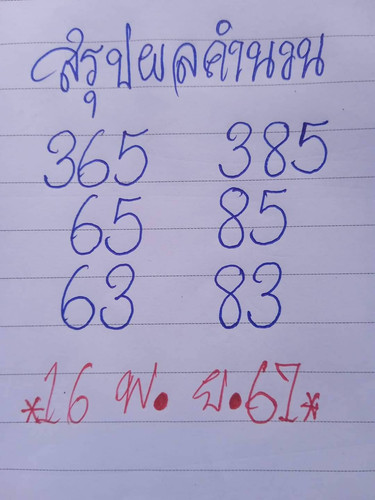 สรุปผลคำนวน
365 385
65 85
63 83
*16 พ.ย.67*